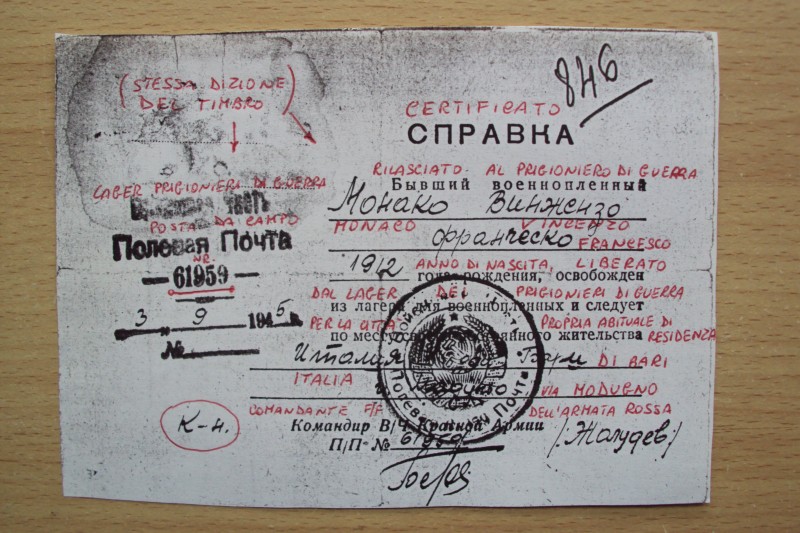 (STESSA DIZIONE
DEL TIMBRO)
846
CERTIFICATO
СПРАВКА
RILASCIATO AL PRIGIONIERO DI GUERRA
Бывший военнопленный
LAGER PRIGIONIERI DI GUERRA
Монако Винжензо
POSTA DA CAMPO
MONACO VINCENZO
Полевая Почта
франческо FRANCESCO
NR.
— 61959 —
1912 ANNO DI NASCITA, LIBERATO
года рождения, освобожден
DAL LAGER DEI PRIGIONIERI DI GUERRA
из лагеря для военнопленных и следует
3 9 1945
PER LA CITTA PROPRIA ABITUALE DI RESIDENZA
по месту жительства
№
Италия Бари DI BARI
ITALIA VIA MODUGNO
COMANDANTE F/F DELL'ARMATA ROSSA
К-н.
Командир В/Ч Красной Армии
П/П № 61959
(Жолудев)
Полевая Почта